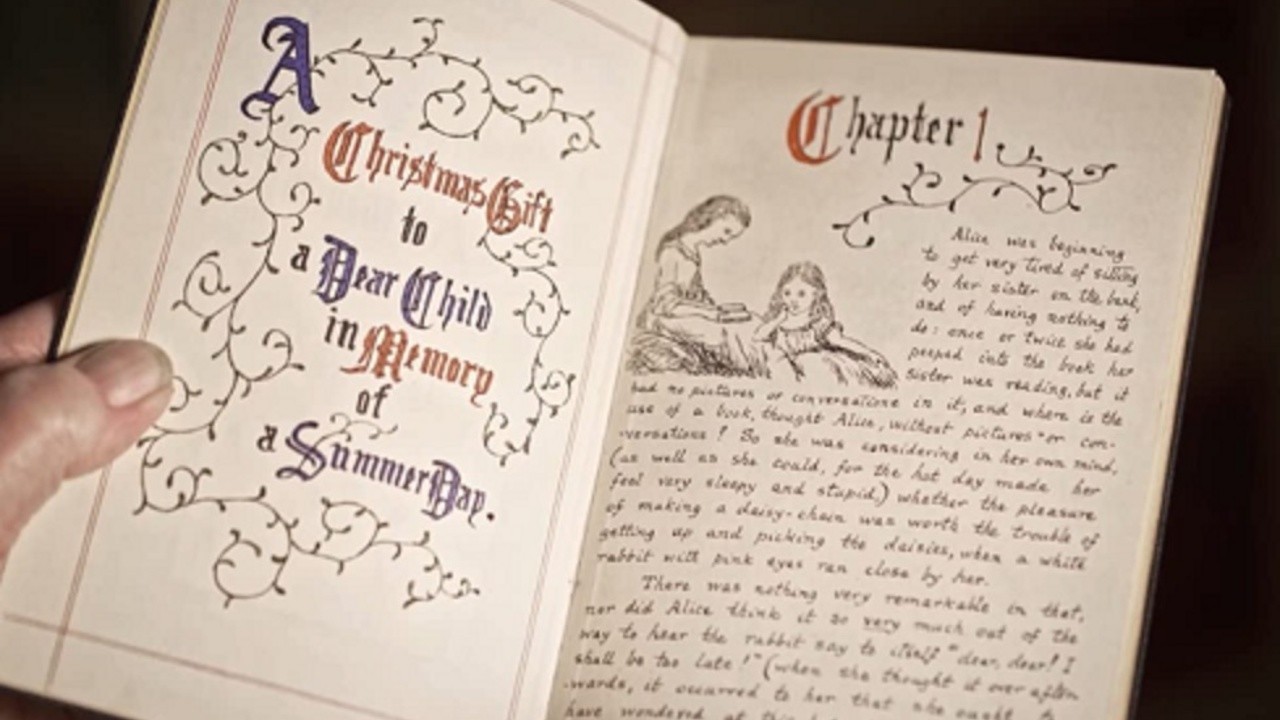 A
Christmas Gift
to
a Dear Child
in Memory
of
a Summer Day.
Chapter 1
Alice was beginning
to get very tired of sitting
by her sister on the bank,
and of having nothing to
do: once or twice she had
peeped into the book her
sister was reading, but it
had no pictures or conversations in it, and where is the
use of a book, thought Alice, without pictures or con-
versations? So she was considering in her own mind,
(as well as she could, for the hot day made her
feel very sleepy and stupid,) whether the pleasure
of making a daisy-chain was worth the trouble of
getting up and picking the daisies, when a white
rabbit with pink eyes ran close by her.
There was nothing very remarkable in that,
nor did Alice think it so very much out of the
way to hear the rabbit say to itself "dear, dear! I
shall be too late!" (when she thought it over after-
wards, it occurred to her that she ought to
have wondered at this